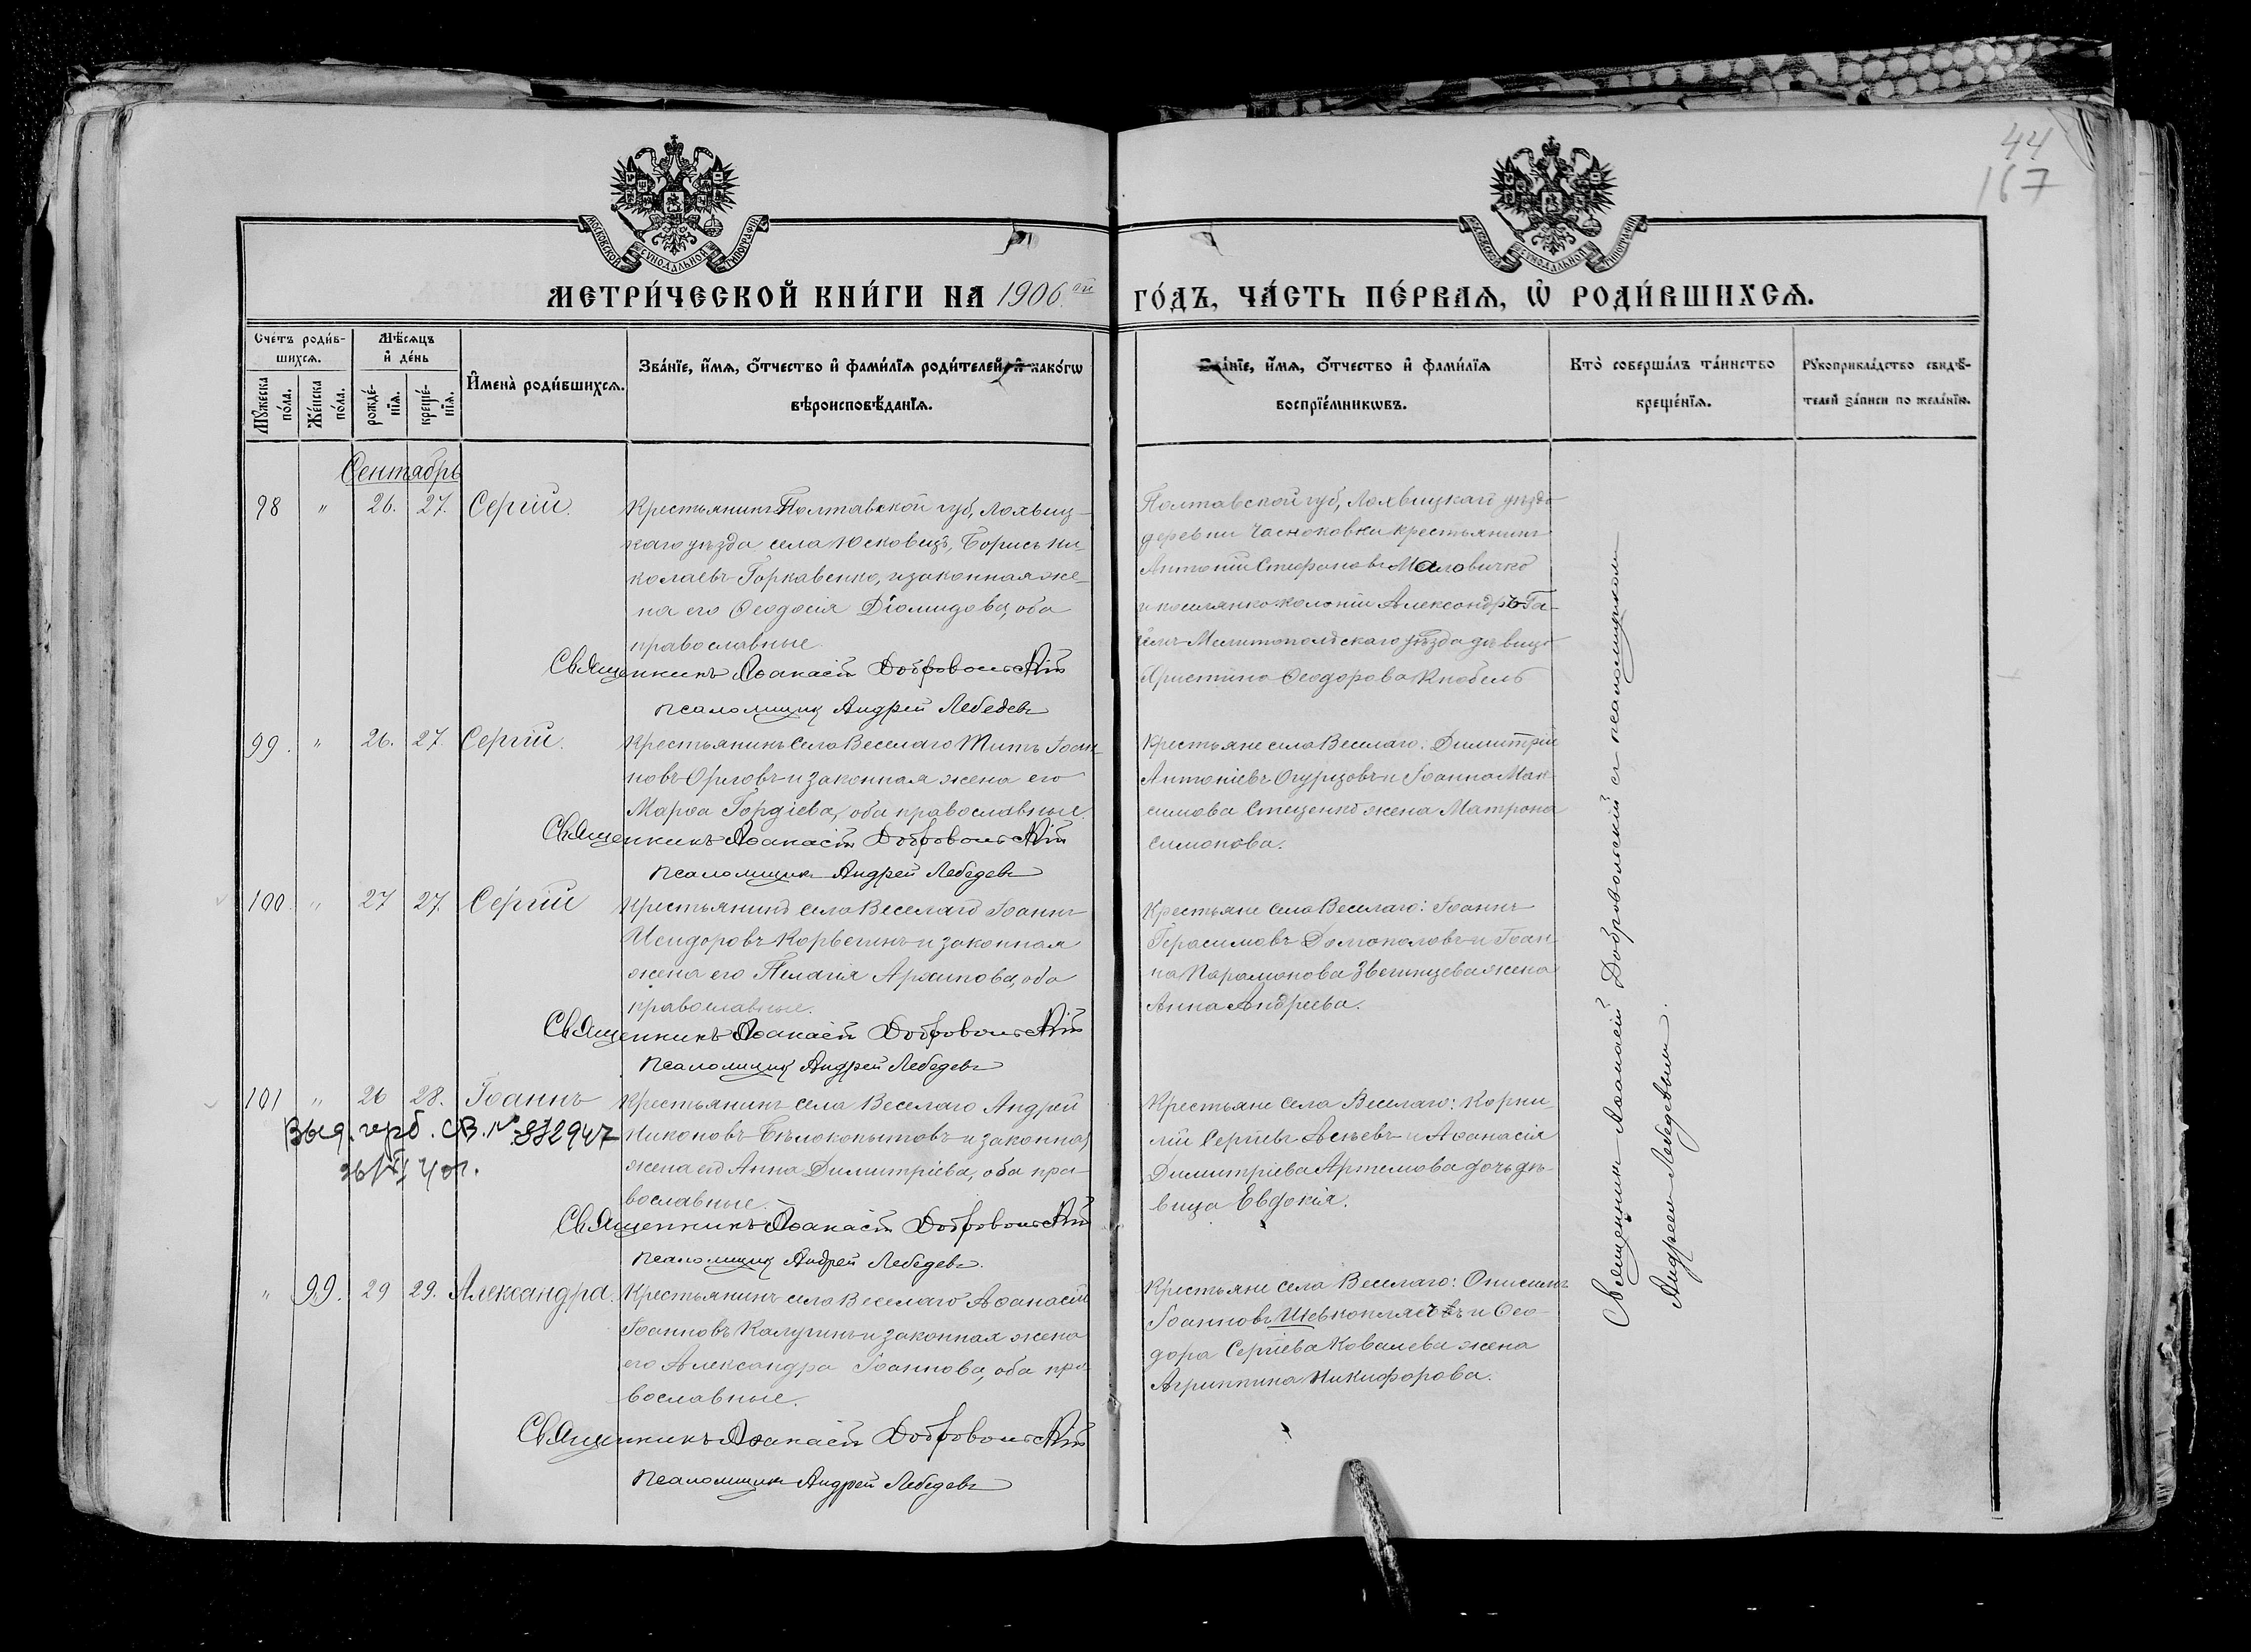 44
167
МОСКОВСКОЙ СУНОДАЛЬНОЙ ТИПОГРАФІИ
МОСКОВСКОЙ СУНОДАЛЬНОЙ ТИПОГРАФІИ
МЕТРИ́ЧЕСКОЙ КНИ́ГИ НА 1906.ой
ГО́ДЪ, ЧА́СТЬ ПЕ́РВАЯ, Ѡ҆ РОДИ́ВШИХСЯ.
Сче́тъ роди́в-
шихся.
Мѣ́сяцъ
и҆ де́нь
Мꙋ́жеска по́ла.
Же́нска по́ла.
рожде́-нїя.
креще́-нїя.
И҆мена̀ роди́вшихся.
Зва́нїе, и҆́мя, о҆́тчество и҆ фами́лїя роди́телей, и҆ како́гѡ
вѣроисповѣ́данїя.
Зва́нїе, и҆́мя, о҆́тчество и҆ фами́лїя
воспрїе́мникѡвъ.
Кто̀ соверша́лъ та́инство
креще́нїя.
Рꙋкоприкла́дство свидѣ́-
телей за́писи по жела́нїю.
Сентябрь
98 " 26. 27. Сергій.
Крестьянинъ Полтавской губ, Лохвиц-
каго уѣзда села Юсковецъ, Борисъ Ни-
колаевъ Горкавенко, и законная же-
на его Ѳеодосія Діомидова, оба
православные.
Священникъ Аѳанасій Добровольскій
Псаломщикъ Андрей Лебедевъ
Полтавской губ, Лохвицкаго уѣзда
деревни Часноковки крестьянинъ
Антоній Стефановъ Маловичко
и поселянка колоніи Александръ Га-
Мелитопольскаго уѣзда дѣвица
Христина Ѳеодорова Кнобель
99. " 26. 27. Сергій.
Крестьянинъ села Веселаго Титъ Іоан-
новъ Орловъ и законная жена его
Марѳа Гордіева, оба православные.
Священникъ Аѳанасій Добровольскій
Псаломщикъ Андрей Лебедевъ
Крестьяне села Веселаго: Димитрій
Антоніевъ Огурцовъ и Іоанна Мак-
симова Стеценко жена Матрона
Симонова.
100. " 27 27. Сергій
Крестьянинъ села Веселаго Іоаннъ
Исидоровъ Корвегинъ и законная
жена его Пелагія Архипова, оба
православные.
Священникъ Аѳанасій Добровольскій
Псаломщикъ Андрей Лебедевъ
Крестьяне села Веселаго: Іоаннъ
Герасимовъ Долгополовъ и Іоан-
на Парамонова Звегинцева жена
Анна Андреева.
101 " 26 28. Іоаннъ
Крестьянинъ села Веселаго Андрей
Никоновъ Бѣлокопытовъ и законная
жена его Анна Димитріева, оба пра-
вославные.
Выд. герб. св. №
Священникъ Аѳанасій Добровольскій
Псаломщикъ Андрей Лебедевъ.
Крестьяне села Веселаго: Корни-
лій Сергіевъ и Аѳанасія
Димитріева Артемова дочь дѣ-
вица Евдокія.
" 99. 29 29. Александра.
Крестьянинъ села Веселаго Аѳанасій
Іоанновъ Калугинъ и законная жена
его Александра Іоаннова, оба пра-
вославные.
Священникъ Аѳанасій Добровольскій
Псаломщикъ Андрей Лебедевъ
Крестьяне села Веселаго: Онисимъ
Іоанновъ и Ѳео-
дора Сергіева Ковалева жена
Агриппина Никифорова.
Священникъ Аѳанасій Добровольскій съ псаломщикомъ
Андреемъ Лебедевымъ.